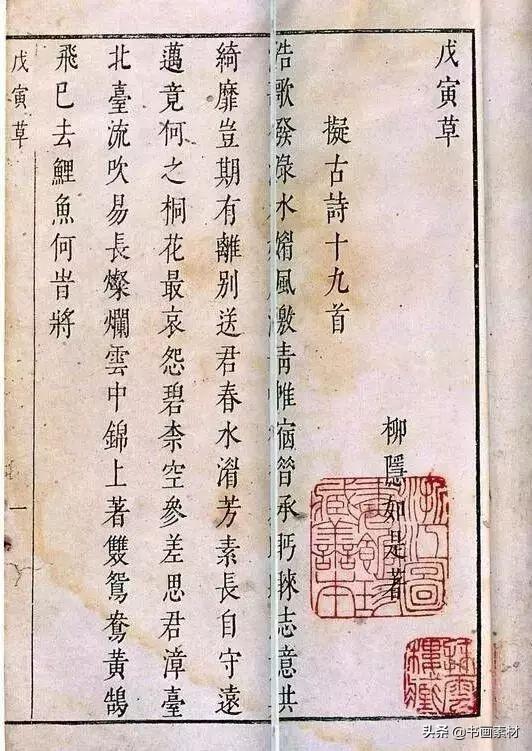 戊寅草
擬古詩十九首
柳隱如是著
浩歌發淥水風激青帷宿昔承眄睞志意共
綺靡豈期有離別送君春水湄芳素長自守遠
邁竟何之桐花最哀怨碧柰空參差思君漳臺
北臺流吹易長燦爛雲中錦上著雙鴛鴦黃鵠
飛已去鯉魚何旹將
戊寅草
一
浙江圖書館珍藏善本
头条 @书画素材